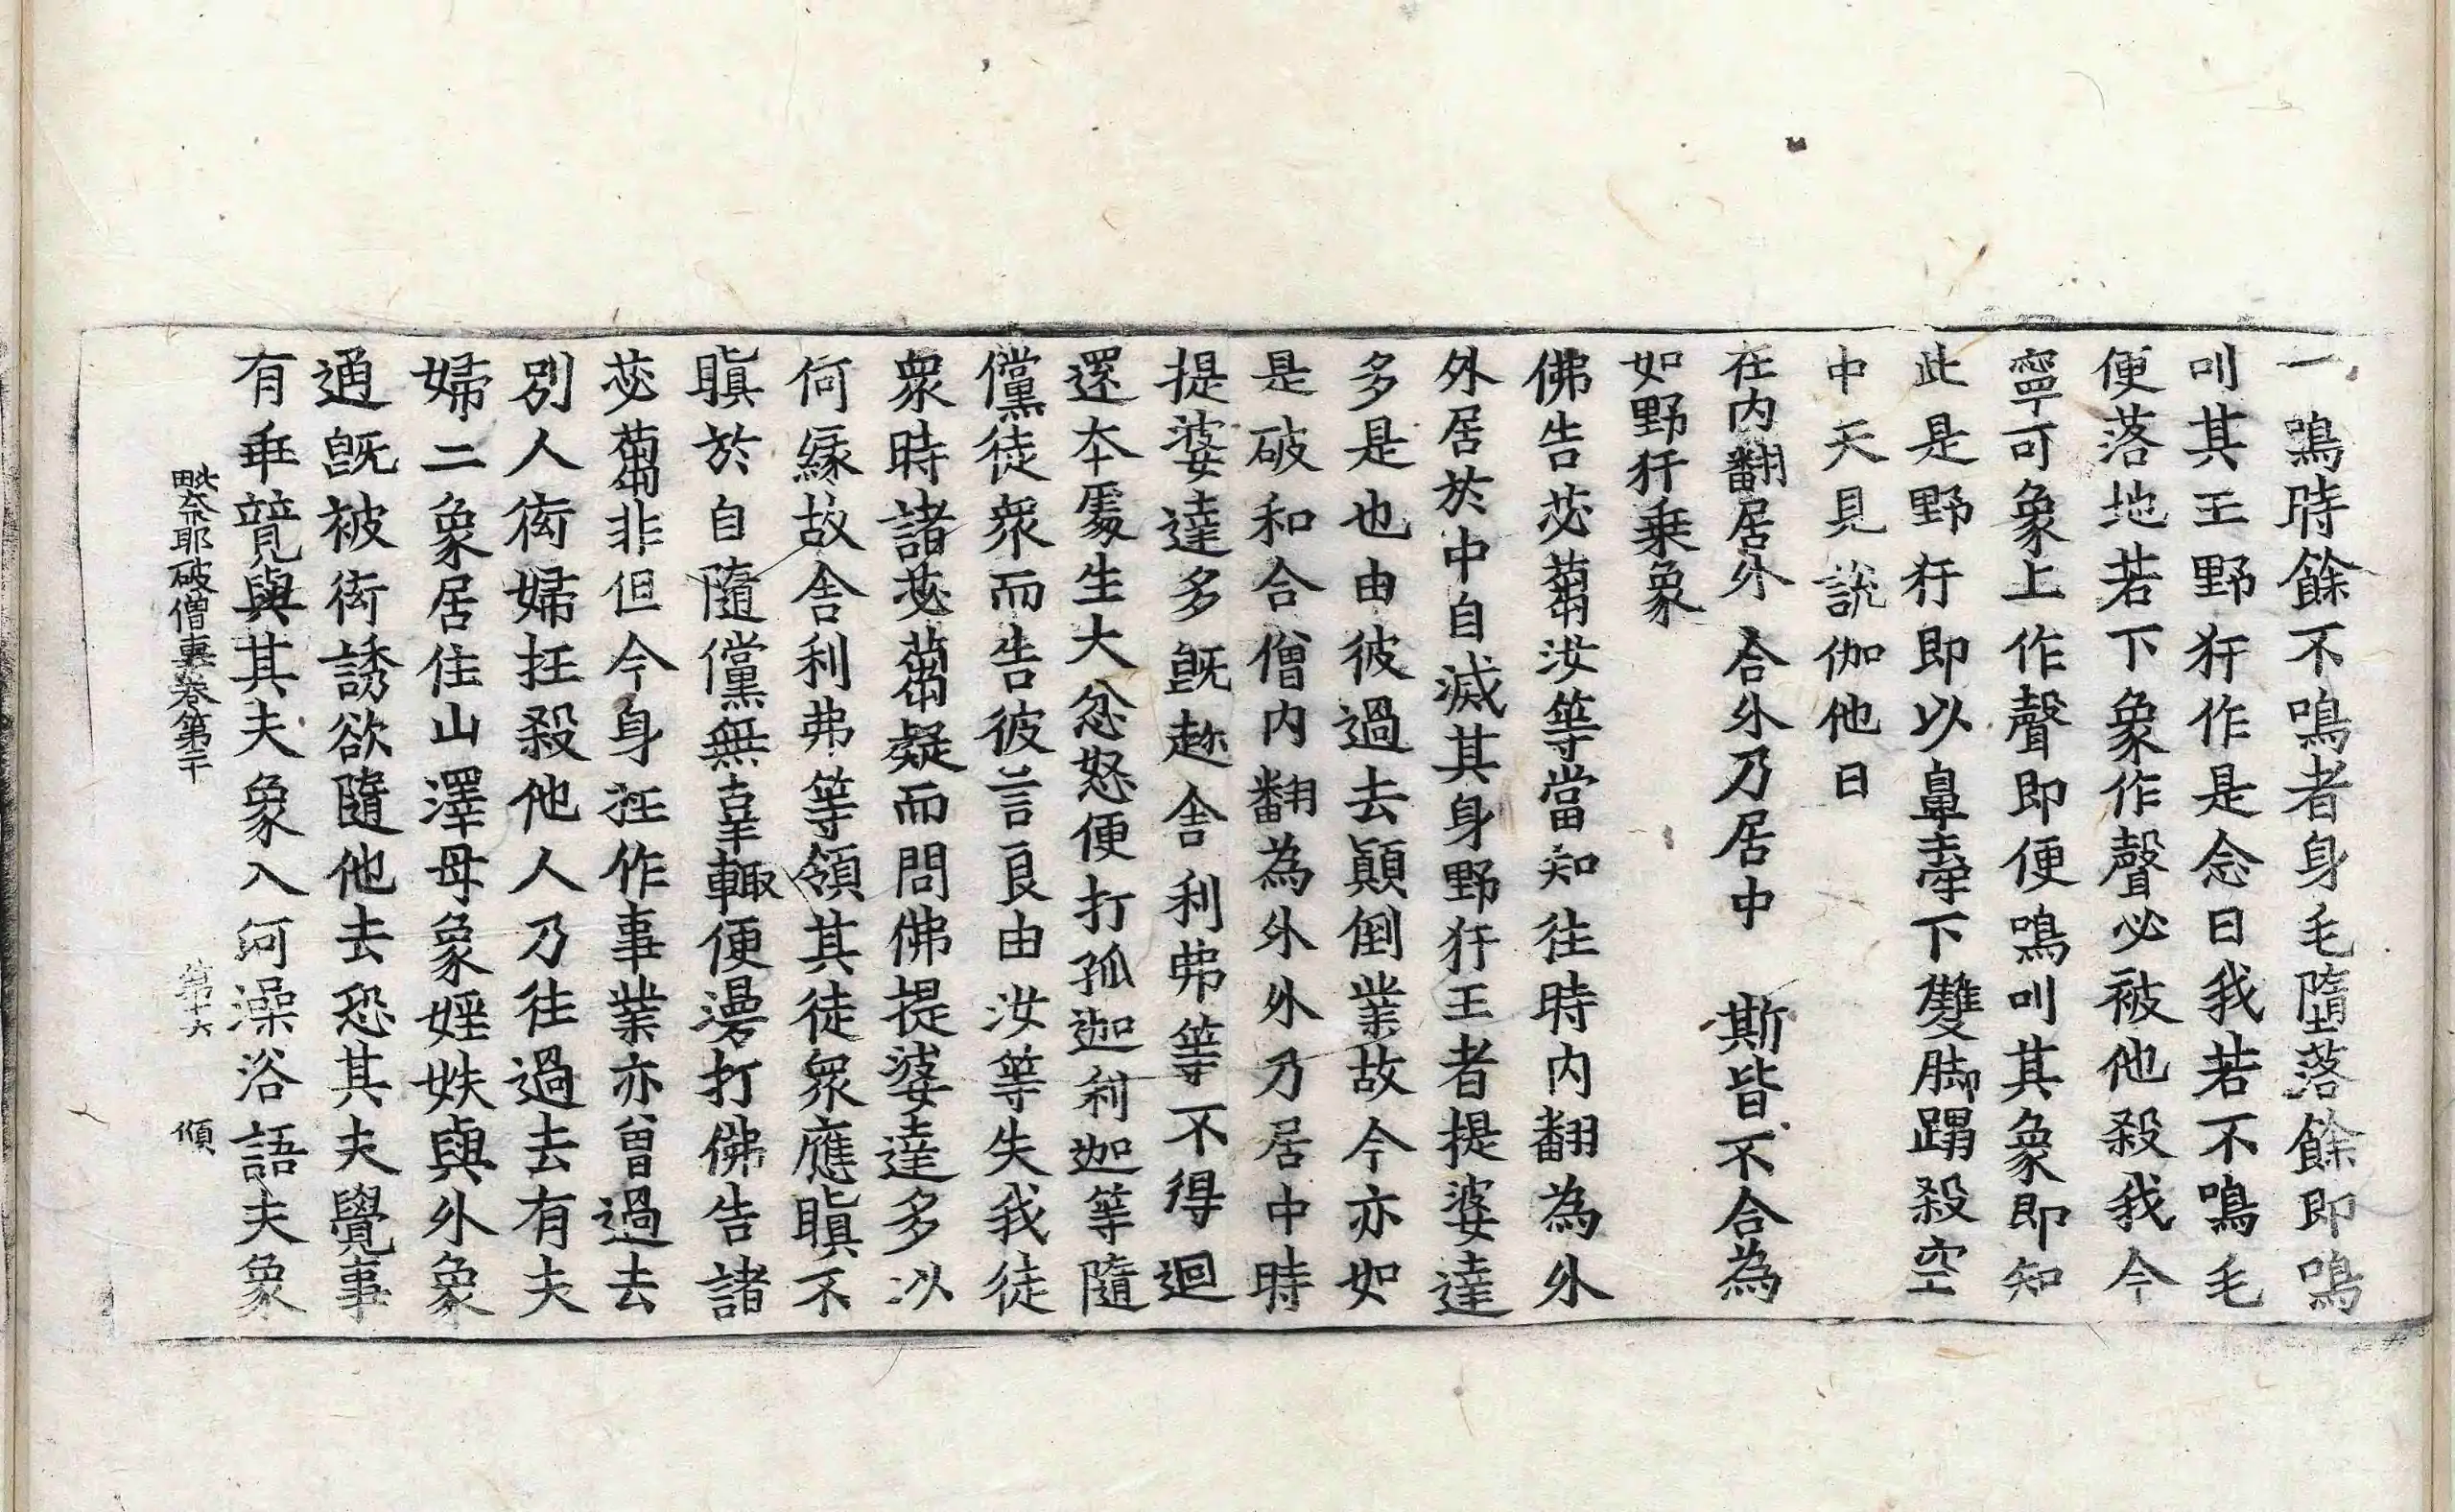 一鳴時餘不鳴者身毛墮落餘即鳴
叫其王野犴作是念曰我若不鳴毛
便落地若下象作聲必被他殺我今
寧可象上作聲即便鳴叫其象即知
此是野犴即以鼻牽下雙脚蹋殺空
中天見說伽他曰
在内翻居外 合外乃居中 斯皆不合為
如野犴乗象
佛告苾蒭汝等當知往時内翻為外
外居於中自滅其身野犴王者提婆達
多是也由彼過去顛倒業故今亦如
是破和合僧内翻為外外乃居中時
提婆達多旣趂舍利弗等不得迴
還本處生大忿怒便打孤迦利迦等隨
儻徒衆而告彼言良由汝等失我徒
衆時諸苾蒭疑而問佛提婆達多以
何緣故舍利弗等領其徒衆應瞋不
瞋於自隨儻無辜輙便漫打佛告諸
苾蒭非但今身抂作事業亦曾過去
別人衒婦抂殺他人乃往過去有夫
婦二象居住山澤母象婬妷與外象
通旣被衒誘欲隨他去恐其夫覺事
有乖競與其夫象入河澡浴語夫象
毗奈耶破僧事卷第二十 第十六 傾